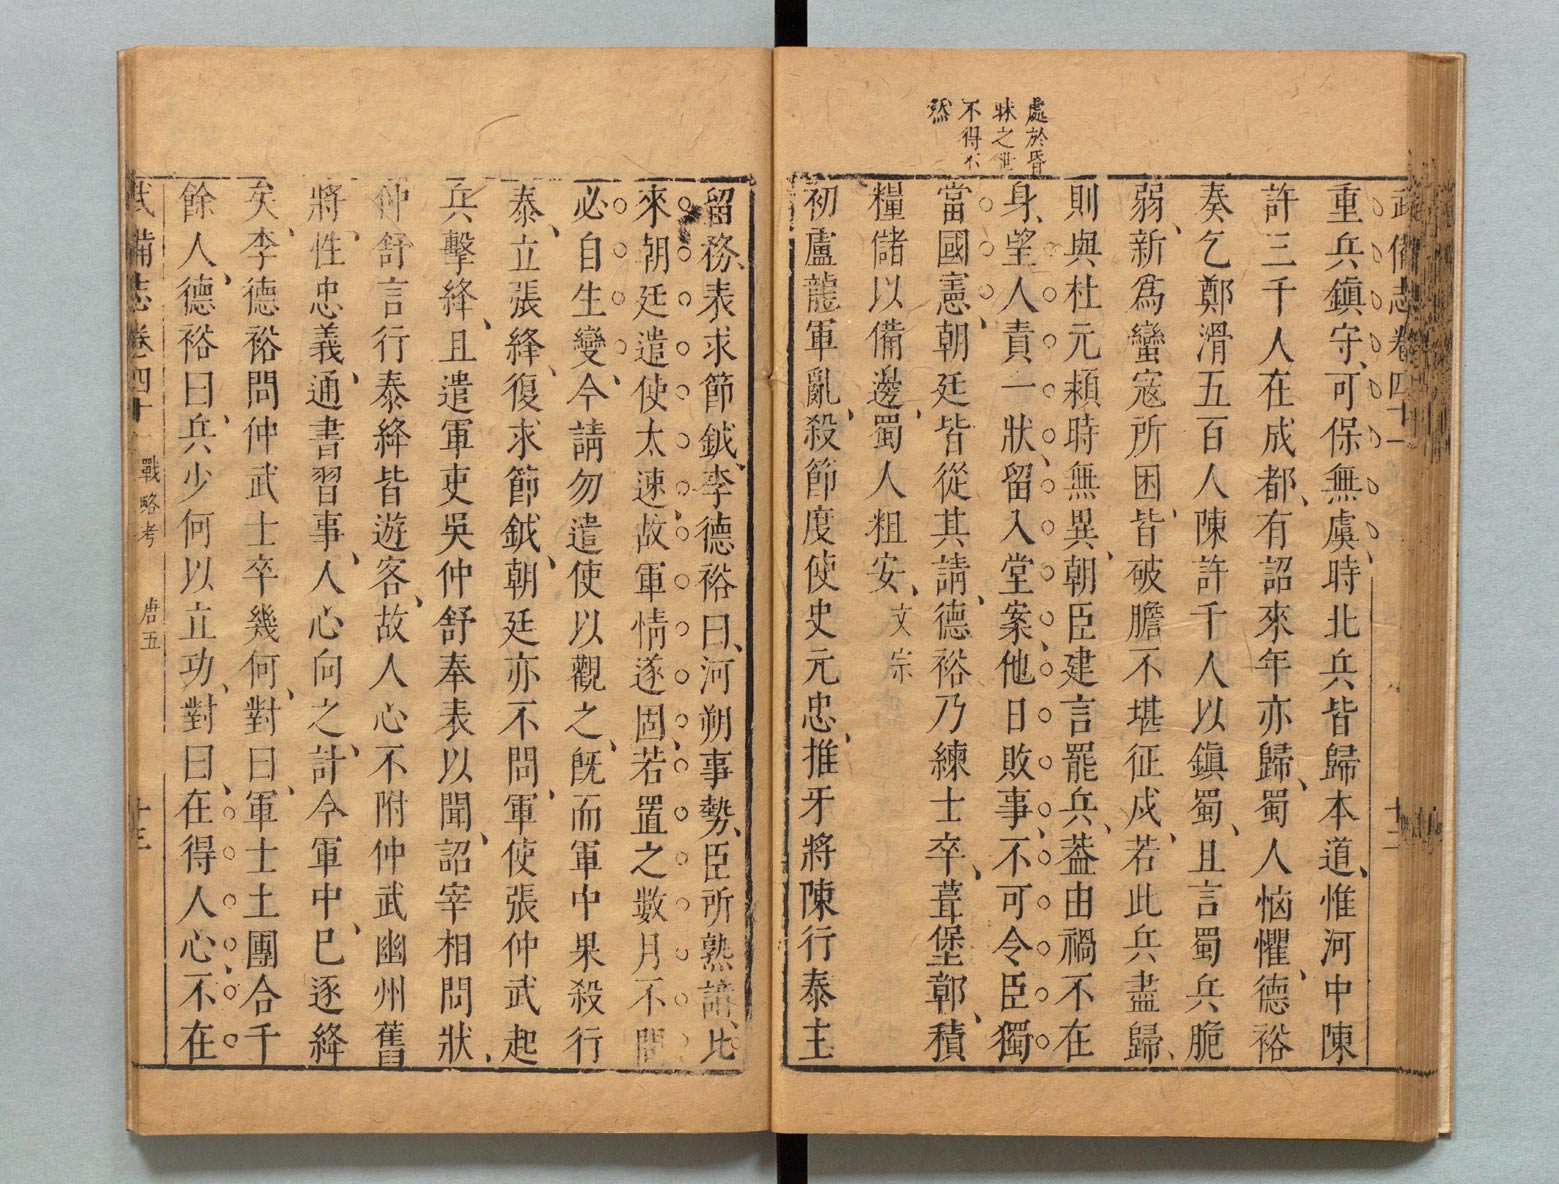 武備志卷四十一
十二
處於昏
昧之世
不得不
然
重兵鎮守可保無虞時北兵皆歸本道惟河中陳
許三千人在成都有詔來年亦歸蜀人恟懼德裕
奏乞鄭滑五百人陳許千人以鎮蜀且言蜀兵脆
弱新為蠻寇所困皆破膽不堪征戍若此兵盡歸
則與杜元頴時無異朝臣建言罷兵葢由禍不在
身望人責一狀留入堂案他日敗事不可令臣獨
當國憲朝廷皆從其請德裕乃練士卒葺堡鄣積
糧儲以備邊蜀人粗安文宗
初盧龍軍亂殺節度使史元忠推牙將陳行泰主
留務表求節鉞李德裕曰河朔事勢臣所熟諳比
來朝廷遣使太速故軍情遂固若置之數月不問
必自生變今請勿遣使以觀之旣而軍中果殺行
泰立張絳復求節鉞朝廷亦不問軍使張仲武起
兵擊絳且遣軍吏吳仲舒奉表以聞詔宰相問狀
仲舒言行泰絳皆遊客故人心不附仲武幽州舊
將性忠義通書習事人心向之計今軍中巳逐絳
矣李德裕問仲武士卒幾何對曰軍士土團合千
餘人德裕曰兵少何以立功對曰在得人心不在
武備志卷四十一 戰略考 唐五 十三